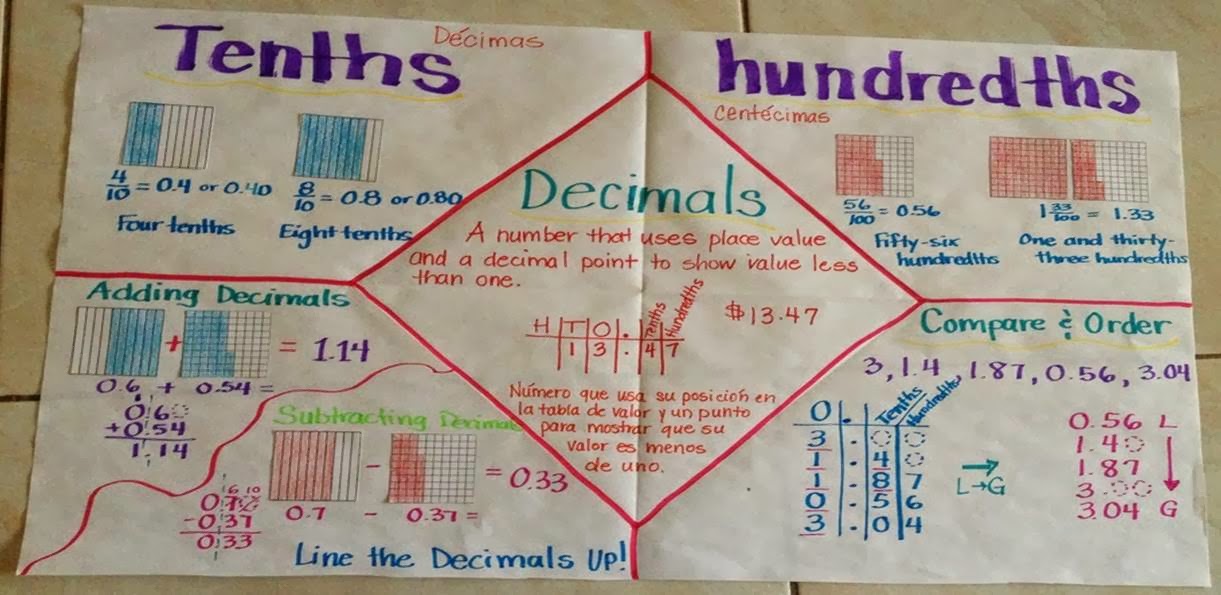 Tenths
Décimas
4/10 = 0.4 or 0.40
Four tenths
8/10 = 0.8 or 0.80
Eight tenths
hundredths
centécimas
56/100 = 0.56
Fifty-six
hundredths
1 33/100 = 1.33
One and thirty-
three hundredths
Decimals
A number that uses place value
and a decimal point to show value less
than one.
H T O . Tenths Hundredths
1 3 . 4 7
$13.47
Número que usa su posición en
la tabla de valor y un punto
para mostrar que su
valor es menos
de uno.
Adding Decimals
+ = 1.14
0.6 + 0.54 =
0.60
+0.54
1.14
Subtracting Decimals
- = 0.33
0.7 - 0.37 =
6 10
0.70
-0.37
0.33
Line the Decimals Up!
Compare & Order
3, 1.4, 1.87, 0.56, 3.04
O . Tenths Hundredths
3 . 0 0
1 . 4 0
1 . 8 7
0 . 5 6
3 . 0 4
L→G
0.56 L
1.40
1.87
3.00
3.04 G